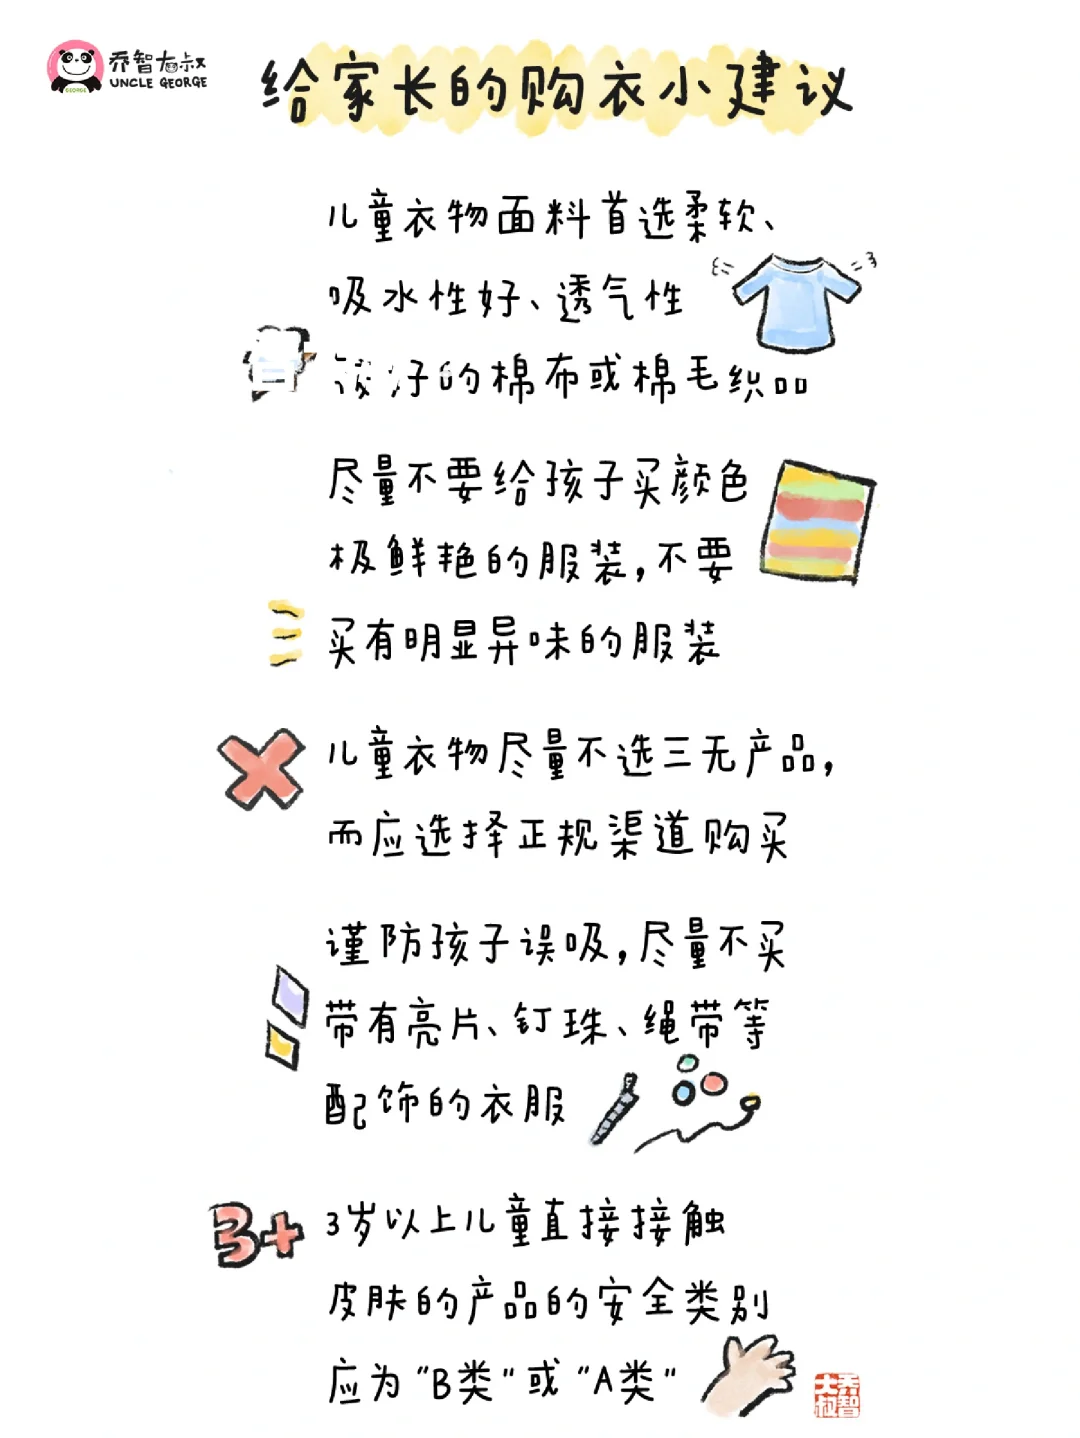 乔智大叔
UNCLE GEORGE
给家长的购衣小建议
儿童衣物面料首选柔软、
吸水性好、透气性
好的棉布或棉毛织品
尽量不要给孩子买颜色
极鲜艳的服装，不要
买有明显异味的服装
儿童衣物尽量不选三无产品，
而应选择正规渠道购买
谨防孩子误吸，尽量不买
带有亮片、钉珠、绳带等
配饰的衣服
3+
3岁以上儿童直接接触
皮肤的产品的安全类别
应为“B类”或“A类”
乔智大叔